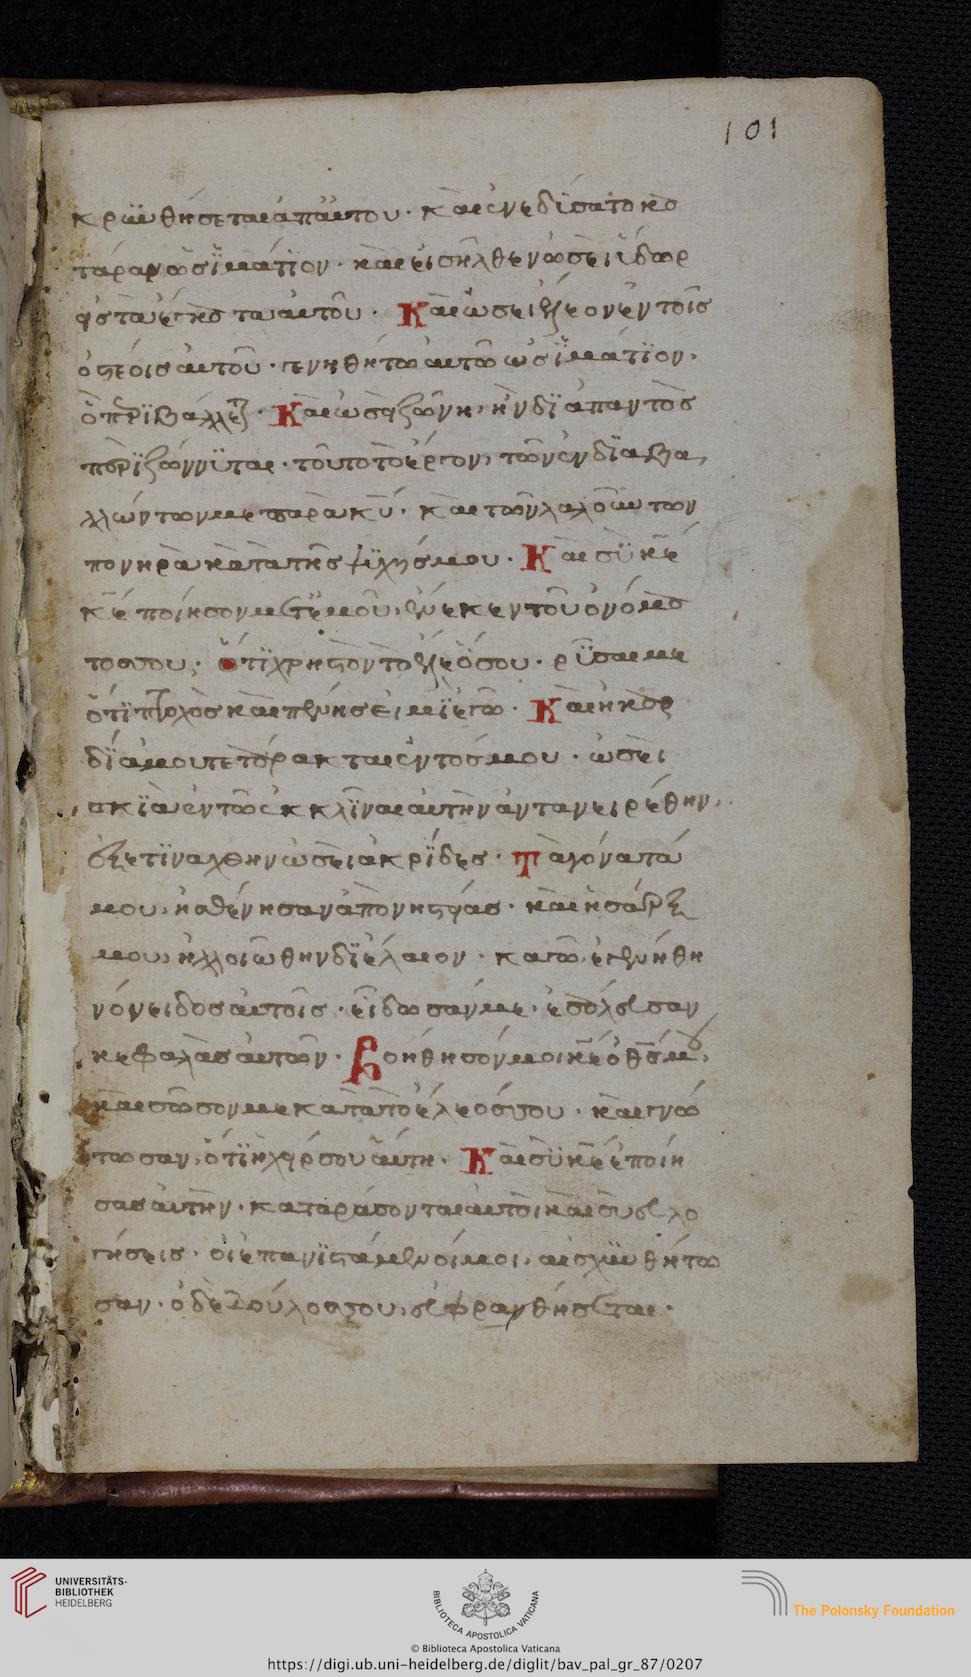 101
κρϋνθήσεται ἀπ' αὐτοῦ · καὶ ἐνεδύσατο κα
τάραν ὡσ ϊμάτϊον · καὶ εἰσῆλθεν ὡσεὶ ὕδωρ
εἰσ τὰ ἔγκατα αὐτοῦ · Καὶ ὡσεὶ ἔλεον ἐν τοῖσ
ὀστέοισ αὐτοῦ · γενηθήτω αὐτῶ ὡσ ϊμάτϊον,
ὃ περϊβάλλεται · Καὶ ὡσεὶ ζώνη, ἣν δϊαπαντὸσ
περϊζώννϋται · τοῦτο τὸ ἔργον, τῶν ἐνδϊαβα
λλόντων με παρὰ κυ · καὶ τῶν λαλούντων
πονηρὰ κατὰ τῆσ ψϋχῆσ μου · Καὶ σὺ κε
κε ποίησον μετ' ἐμοῦ, ἕνεκεν τοῦ ὀνόμα
τοσ σου · ὅτϊ χρηστὸν τὸ ἔλεόσ σου · ρῦσαι με
ὅτϊ πτωχὸσ καὶ πένησ εἰμὶ ἐγὼ · Καὶ ἡ καρ
δία μου τετάρακται ἐντόσ μου · ὡσεὶ
σκϊὰ ἐν τῶ ἐκκλῖναι αὐτὴν ἀντανειρέθην,
ἐξετϊνάχθην ὡσεὶ ἀκρίδεσ · Τὰ γόνατά
μου, ἠσθένησαν ἀπὸ νηστείασ · καὶ ἡ σάρξ
μου, ἠλλοιώθην δϊ' ἔλαιον · καγὼ, ἐγενήθη
ν ὄνειδοσ αὐτοῖσ · εἴδωσάν με, ἐσάλευσαν
κεφαλὰσ αὐτῶν · Βοήθησόν μοι κε ὁ θσ μου,
καὶ σῶσον με κατὰ τὸ ἔλεόσ σου · καὶ γνώ
τωσαν, ὅτϊ ἡ χείρ σου αὕτη · Καὶ σὺ κε ἐποίη
σασ αὐτὴν · καταράσονται αὐτοὶ καὶ σὺ εὐλο
γήσεισ · οἱ ἐπανϊστάμενοί μοι, αἰσχϋνθήτω
σαν · ὁ δὲ δοῦλοσ σου, εὐφρανθήσεται ·
UNIVERSITÄTS-
BIBLIOTHEK
HEIDELBERG
BIBLIOTECA APOSTOLICA VATICANA
The Polonsky Foundation
© Biblioteca Apostolica Vaticana
https://digi.ub.uni-heidelberg.de/diglit/bav_pal_gr_87/0207